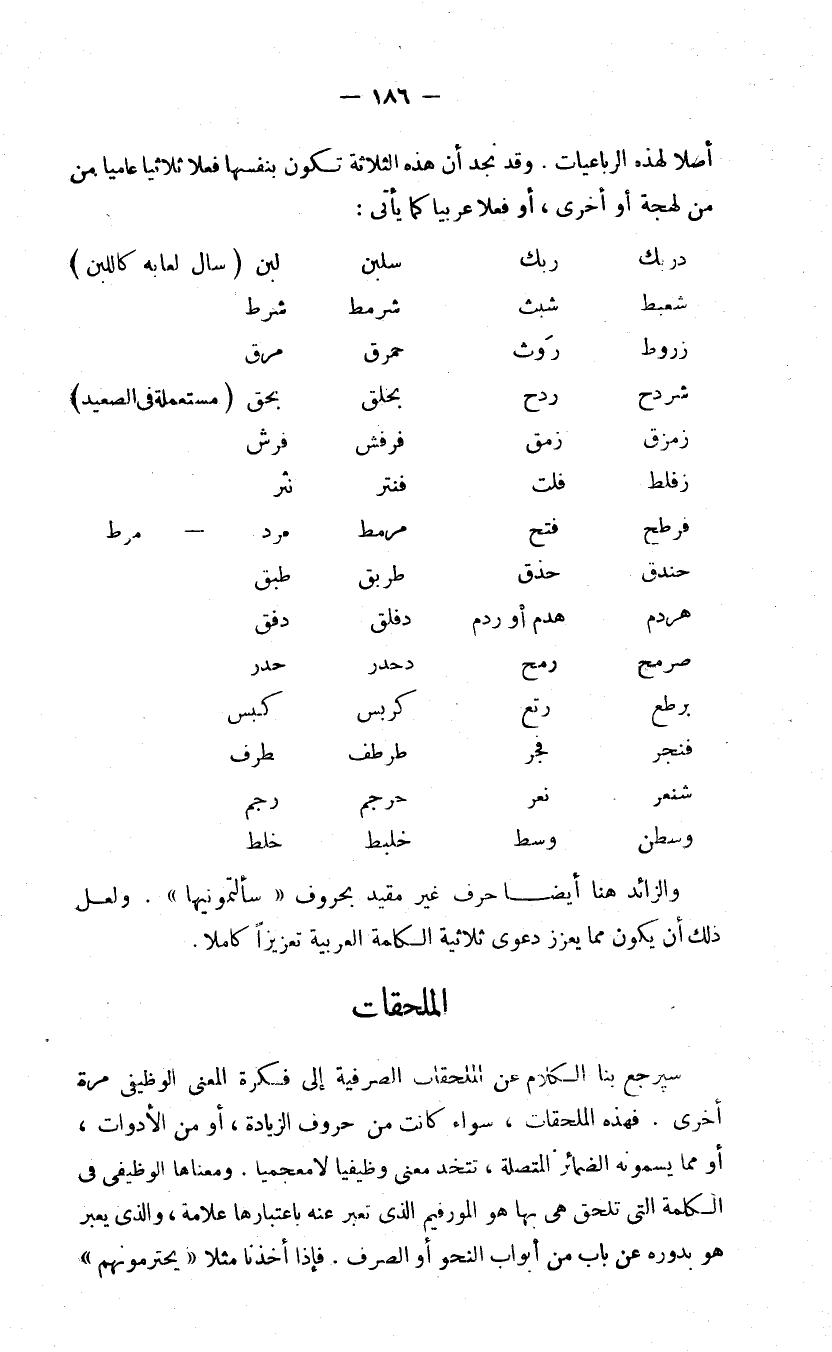 — ١٨٦ —
أصلا لهذه الرباعيات . وقد نجد أن هذه الثلاثة تكون بنفسها فعلا ثلاثيا عاميا من
من لهجة أو أخرى ، أو فعلا عربيا كما يأتى :
دربك ربك سلبن لبن ( سال لعابه كاللبن )
شعبط شبث شرمط شرط
زروط رَوث حمرق مرق
شردح ردح بحلق بحق ( مستعملة فى الصعيد )
زمزق زمق فرفش فرش
زفلط فلت فنتر نثر
فرطح فتح مرمط مرد — مرط
حندق حذق طربق طبق
هردم هدم أو ردم دفلق دفق
صرمح رمح دحدر حدر
برطع رتع كربس كبس
فنجر فجر طرطف طرف
شنعر نعر حرجم رجم
وسطن وسط خلبط خلط
والزائد هنا أيضا حرف غير مقيد بحروف « سألتمونيها » . ولعل
ذلك أن يكون مما يعزز دعوى ثلاثية الكلمة العربية تعزيزاً كاملا .
الملحقات
سيرجع بنا الكلام عن الملحقات الصرفية إلى فكرة المعنى الوظيفى مرة
أخرى . فهذه الملحقات ، سواء كانت من حروف الزيادة ، أو من الأدوات ،
أو مما يسمونه الضمائر المتصلة ، تتخد معنى وظيفيا لا معجميا . ومعناها الوظيفى فى
الكلمة التى تلحق هى بها هو المورفيم الذى تعبر عنه باعتبارها علامة ، والذى يعبر
هو بدوره عن باب من أبواب النحو أو الصرف . فإذا أخذنا مثلا « يحترمونهم »